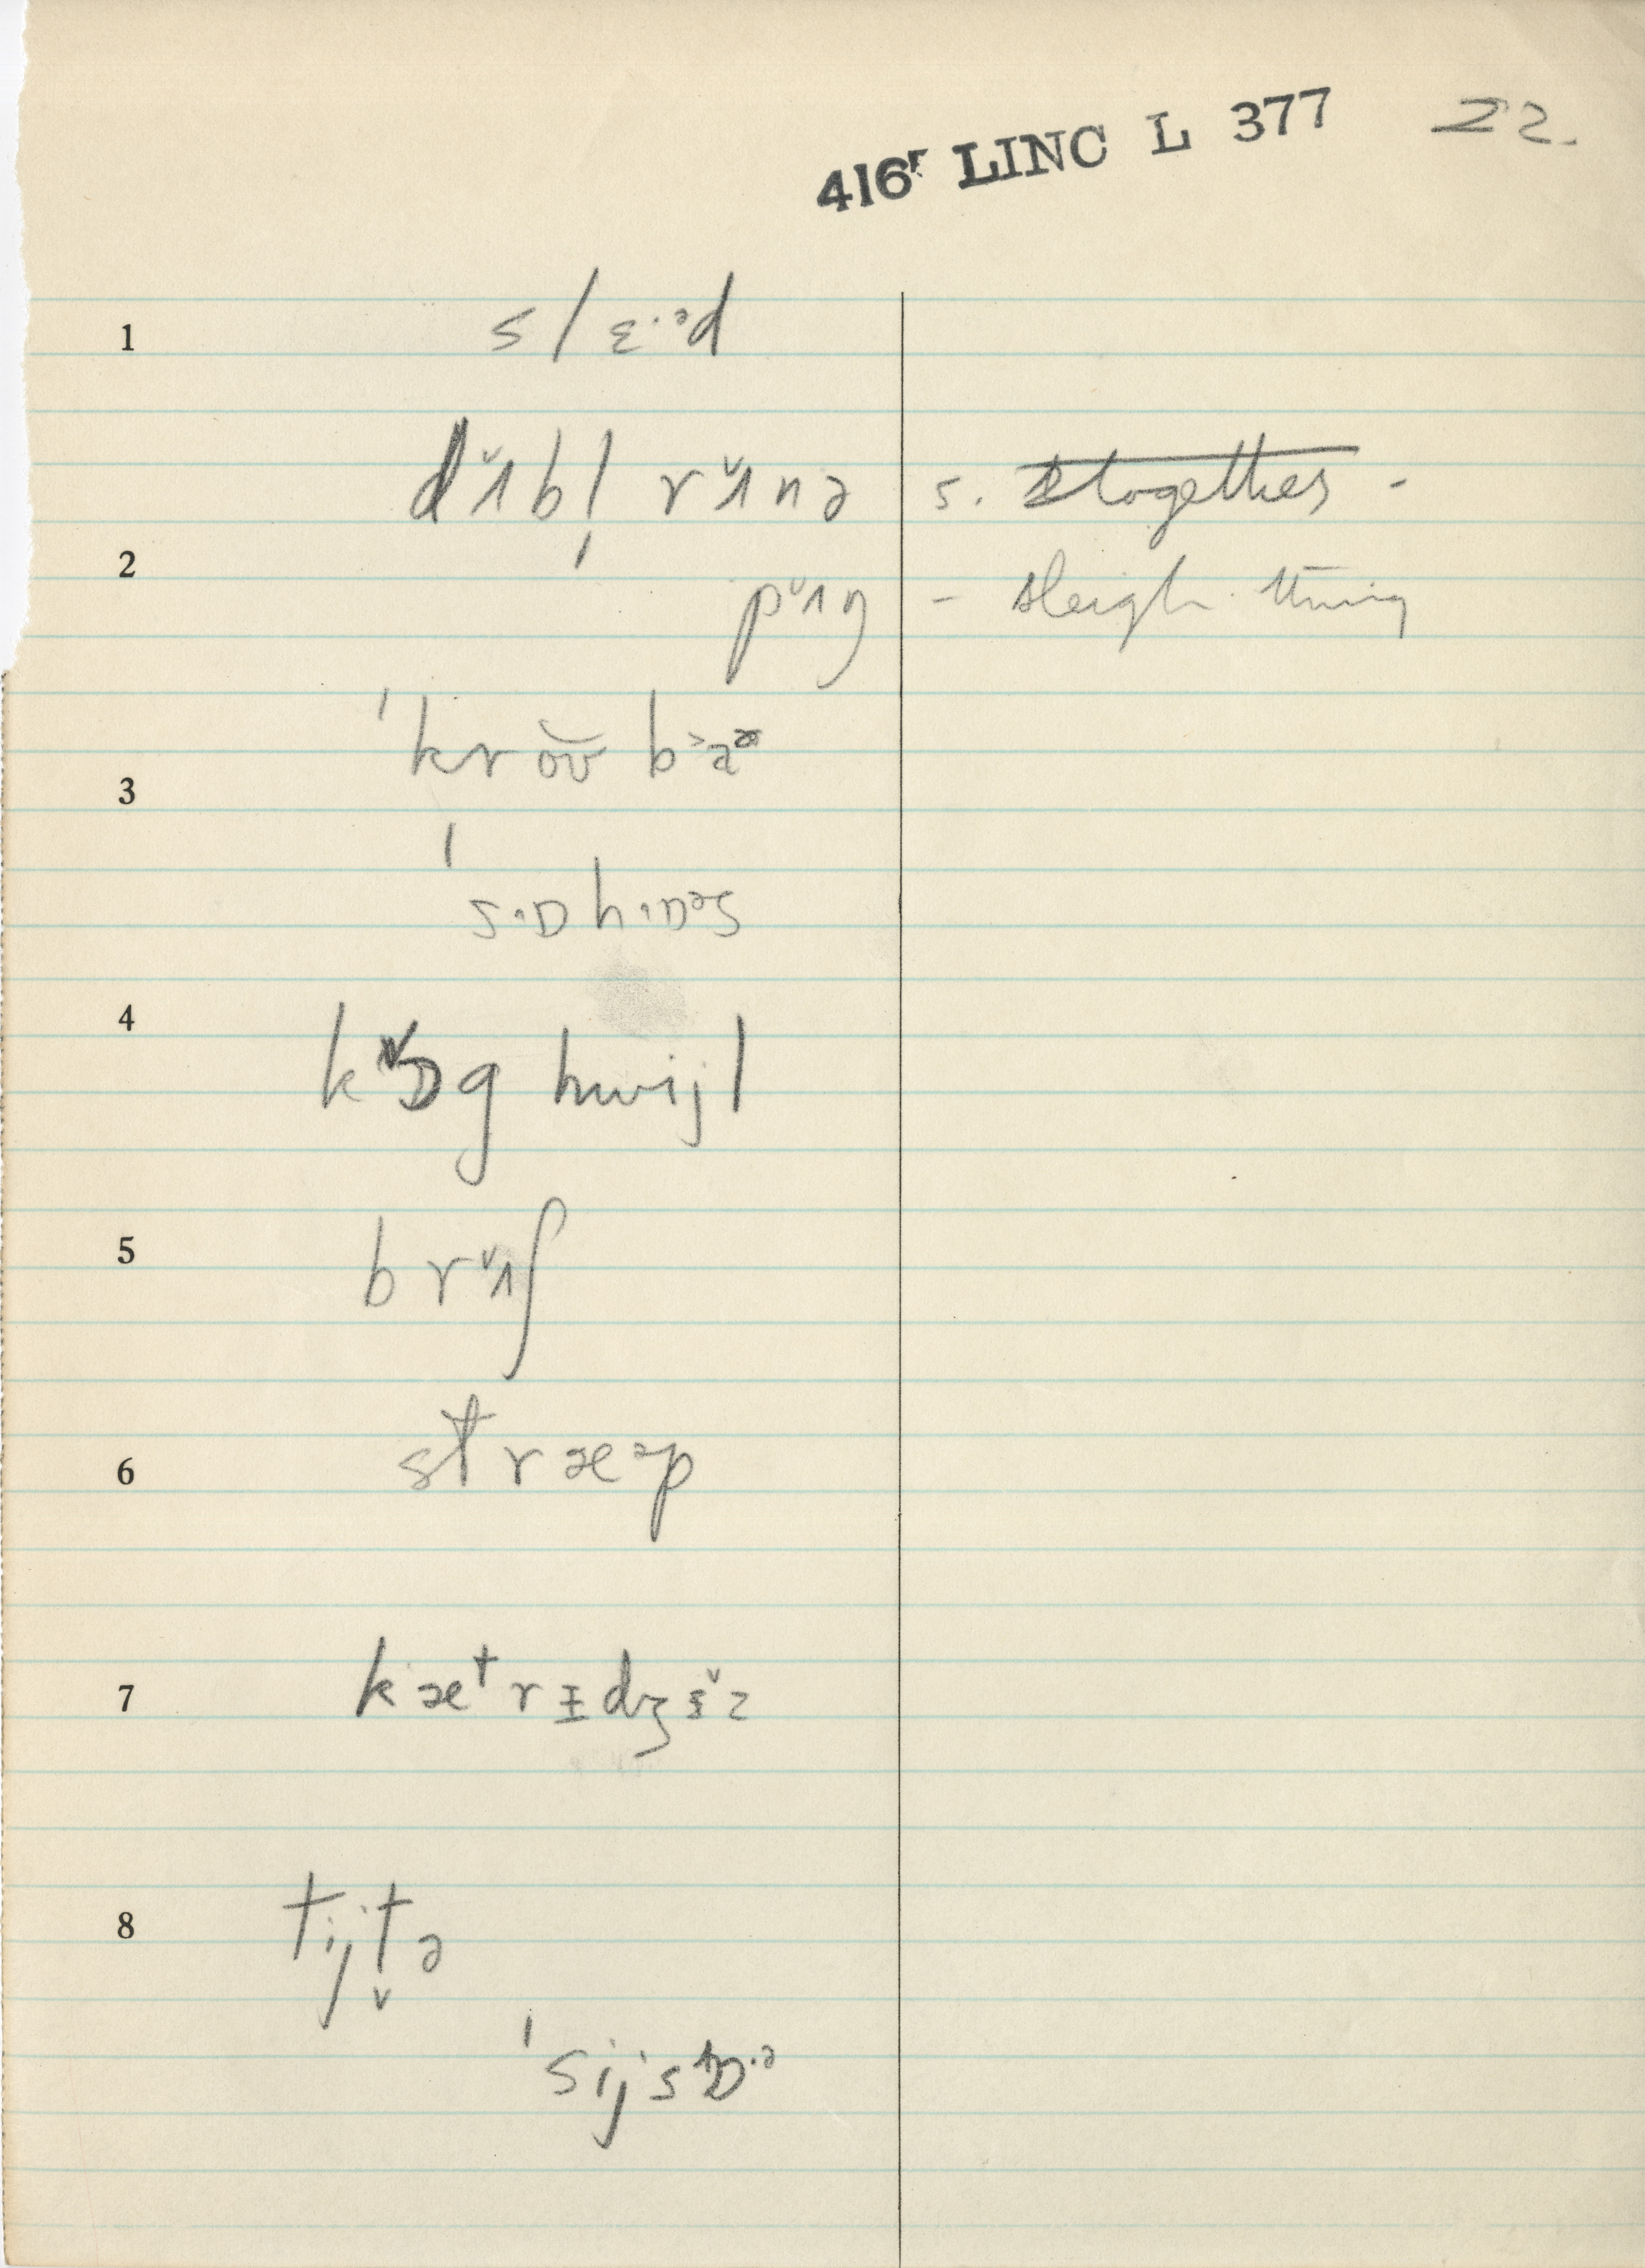 416ʳ LINC L 377 22.
1 slɛ·ᵊd
dʌ̆bl̩ rʌ̆nə s. together -
2
pʌ̆ŋ - sleigh thing
ˈkroʊ̆ ba
3
ˈsɒ·hɒ·ᵊs
4
kɒ̆g hwijl
5 brʌ̆ʃ
6 stræᵊp
7 kætrɪdʒɪ̆z
8 tijt̬ə
ˈsijsɒ·ᵊ